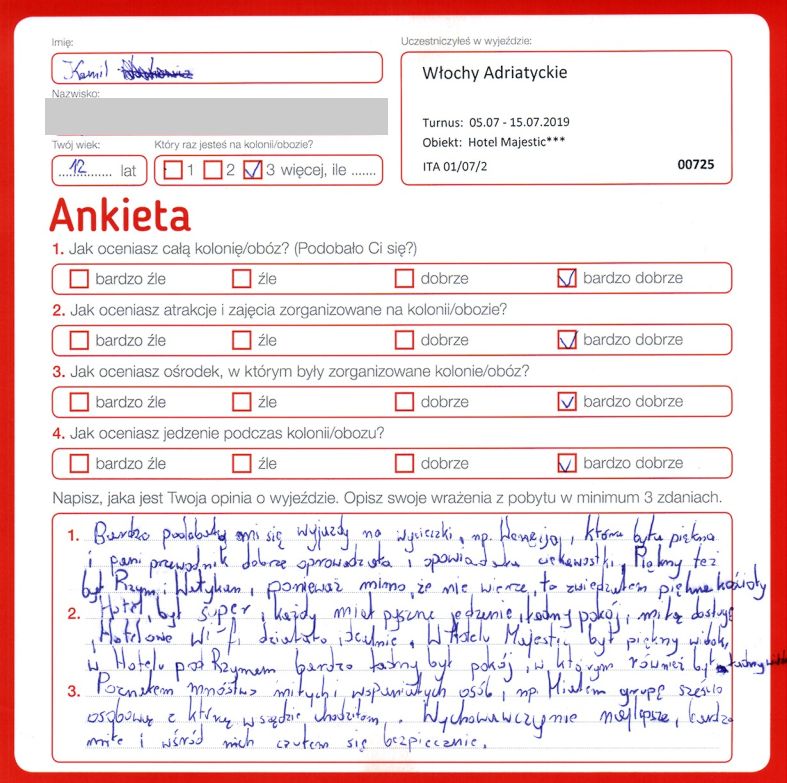 Imię:
Kamil
Nazwisko:
Twój wiek:
12 lat
Który raz jesteś na kolonii/obozie?
1 2 3 więcej, ile .......
Uczestniczyłeś w wyjeździe:
Włochy Adriatyckie
Turnus: 05.07 - 15.07.2019
Obiekt: Hotel Majestic***
ITA 01/07/2 00725
Ankieta
1. Jak oceniasz całą kolonię/obóz? (Podobało Ci się?)
bardzo źle źle dobrze bardzo dobrze
2. Jak oceniasz atrakcje i zajęcia zorganizowane na kolonii/obozie?
bardzo źle źle dobrze bardzo dobrze
3. Jak oceniasz ośrodek, w którym były zorganizowane kolonie/obóz?
bardzo źle źle dobrze bardzo dobrze
4. Jak oceniasz jedzenie podczas kolonii/obozu?
bardzo źle źle dobrze bardzo dobrze
Napisz, jaka jest Twoja opinia o wyjeździe. Opisz swoje wrażenia z pobytu w minimum 3 zdaniach.
1. Bardzo podobały mi się wyjazdy na wycieczki, np. Wenecja, która była piękna
i pani przewodnik dobrze oprowadzała i opowiadała ciekawostki. Piękny też
był Rzym i Watykan, ponieważ mimo, że nie wierzę, to zwiedzałem piękne kościoły
2. Hotel był super, każdy miał pyszne jedzenie, ładny pokój, miłą obsługę
, Hotelowe Wi-fi działało idealnie. W Hotelu Majestic był piękny widok,
w Hotelu pod Rzymem bardzo ładny był pokój, w którym również był ładny widok
3. Poznałem mnóstwo miłych i wspaniałych osób, np. Miałem grupę sześcio
osobową z którą wszędzie chodziłem. Wychowawczynie najlepsze, bardzo
miłe i wśród nich czułem się bezpiecznie.